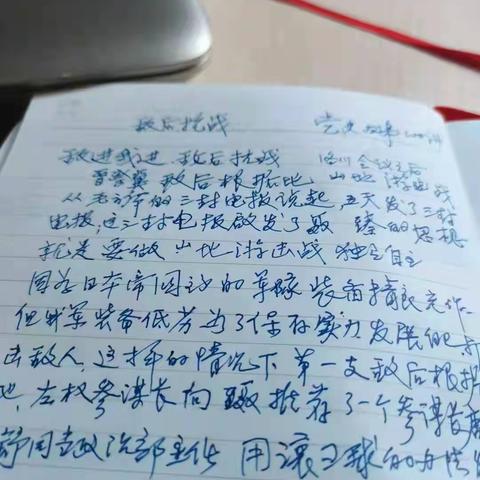 敌后抗战 党史故事100讲
敌进我进 敌后抗战 洛川会议之后
晋察冀敌后根据地 山地游击战
从毛主席的三封电报说起,五天发了三封
电报,这三封电报启发了聂 臻的思想
就是要做山地游击战 独立自主
因为日本帝国主义的军队装备精良充作
但我军装备低劣为了保存实力发展
击敌人,这样的情况下第一支敌后根据
地,左权参谋长向聂推荐了一个参谋长
舒同是政治部主任 用滚雪球的办法